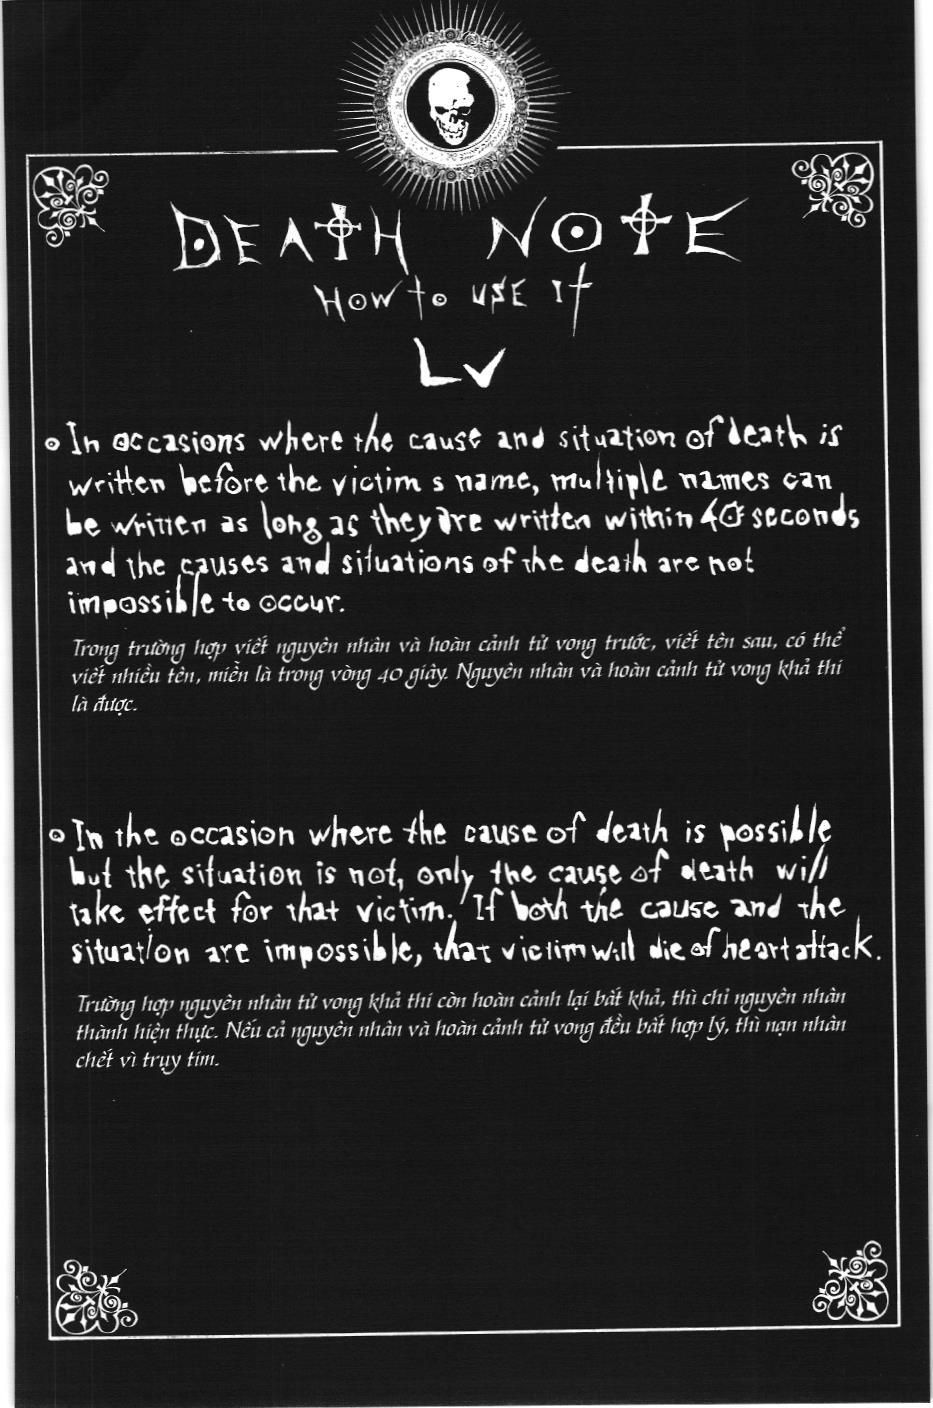 DEATH NOTE
HOW to USE It
LV
In occasions where the cause and situation of death is
written before the victim s name, multiple names can
be written as long as they are written within 40 seconds
and the causes and situations of the death are not
impossible to occur.
Trong trường hợp viết nguyên nhân và hoàn cảnh tử vong trước, viết tên sau, có thể
viết nhiều tên, miễn là trong vòng 40 giây. Nguyên nhân và hoàn cảnh tử vong khả thi
là được.
In the occasion where the cause of death is possible
but the situation is not, only the cause of death will
take effect for that victim. If both the cause and the
situation are impossible, that victim will die of heart attack.
Trường hợp nguyên nhân tử vong khả thi còn hoàn cảnh lại bất khả, thì chỉ nguyên nhân
thành hiện thực. Nếu cả nguyên nhân và hoàn cảnh tử vong đều bất hợp lý, thì nạn nhân
chết vì trụy tim.